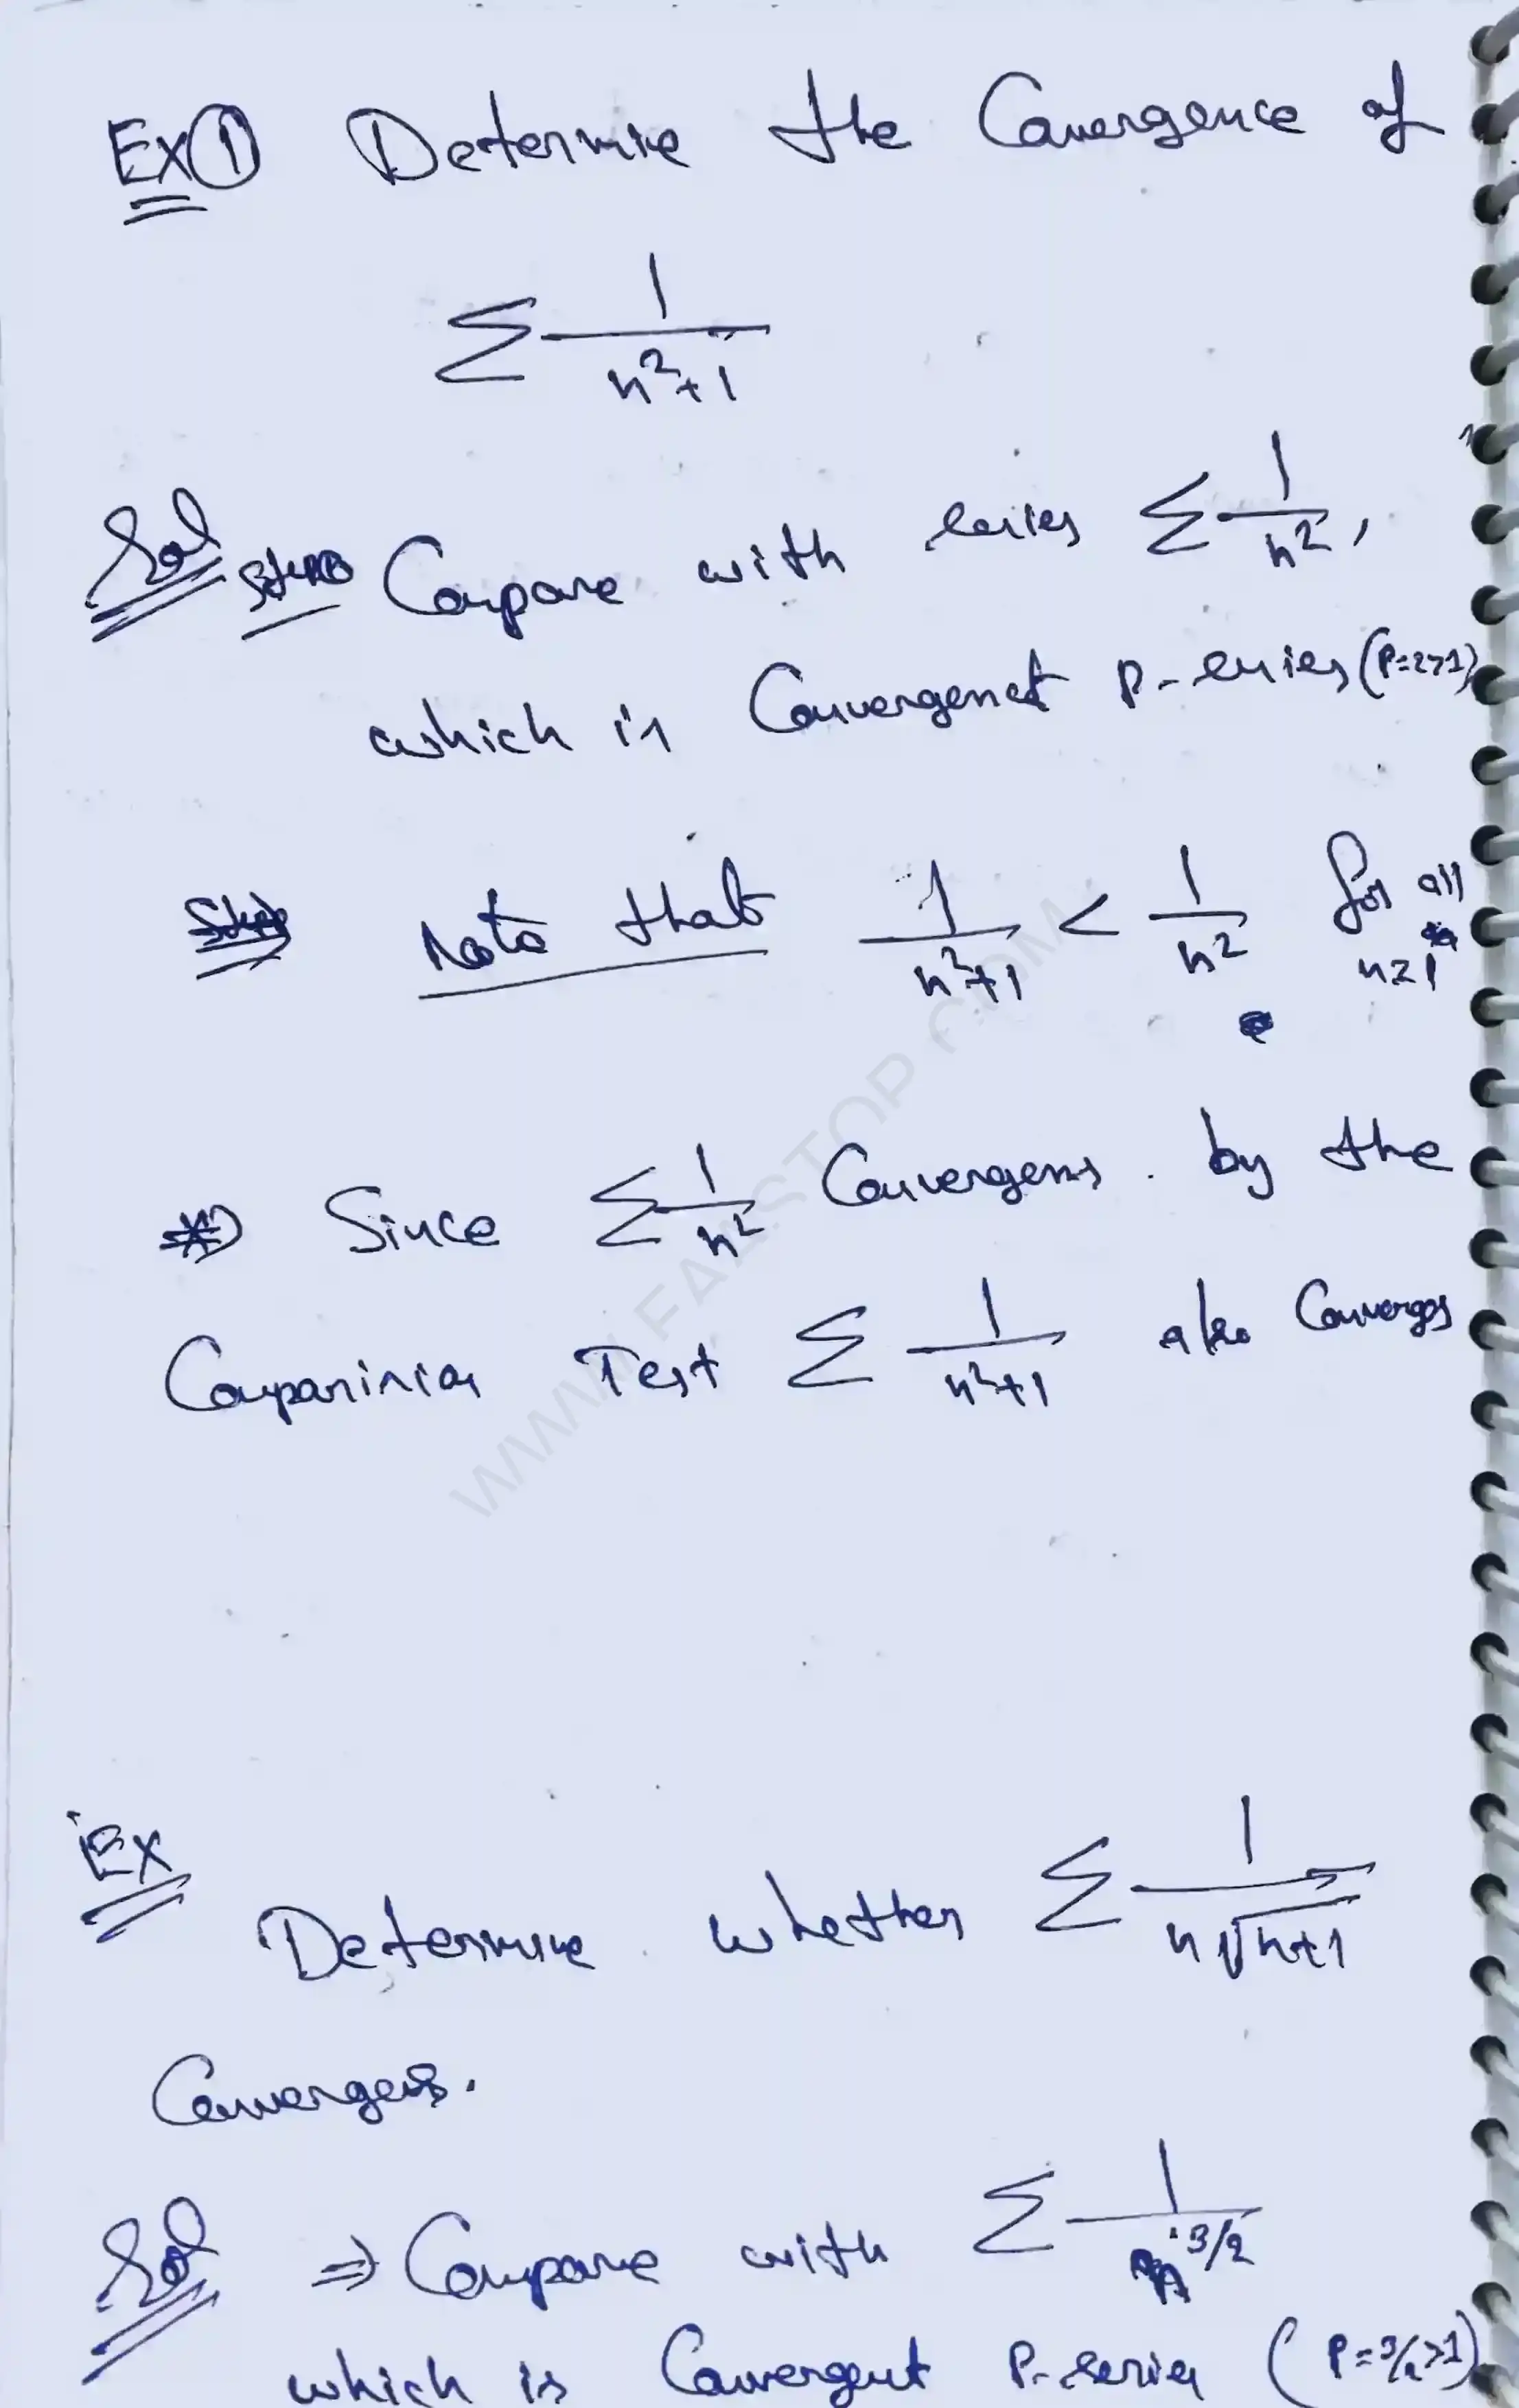 Ex ① Determine the Convergence of
∑ 1/(n²+1)
Sol Compare with series ∑ 1/n²,
which is Convergenet P-series (P=2>1)
Note that 1/(n²+1) < 1/n² for all n≥1
Since ∑ 1/n² Converges. by the
Comparision Test ∑ 1/(n²+1) also Converges
Ex
Determine whether ∑ 1/(n√(n+1))
Converges.
Sol ⇒ Compare with ∑ 1/n^(3/2)
which is Convergent P-series (P=3/2>1)
WWW.FAASTOP.COM